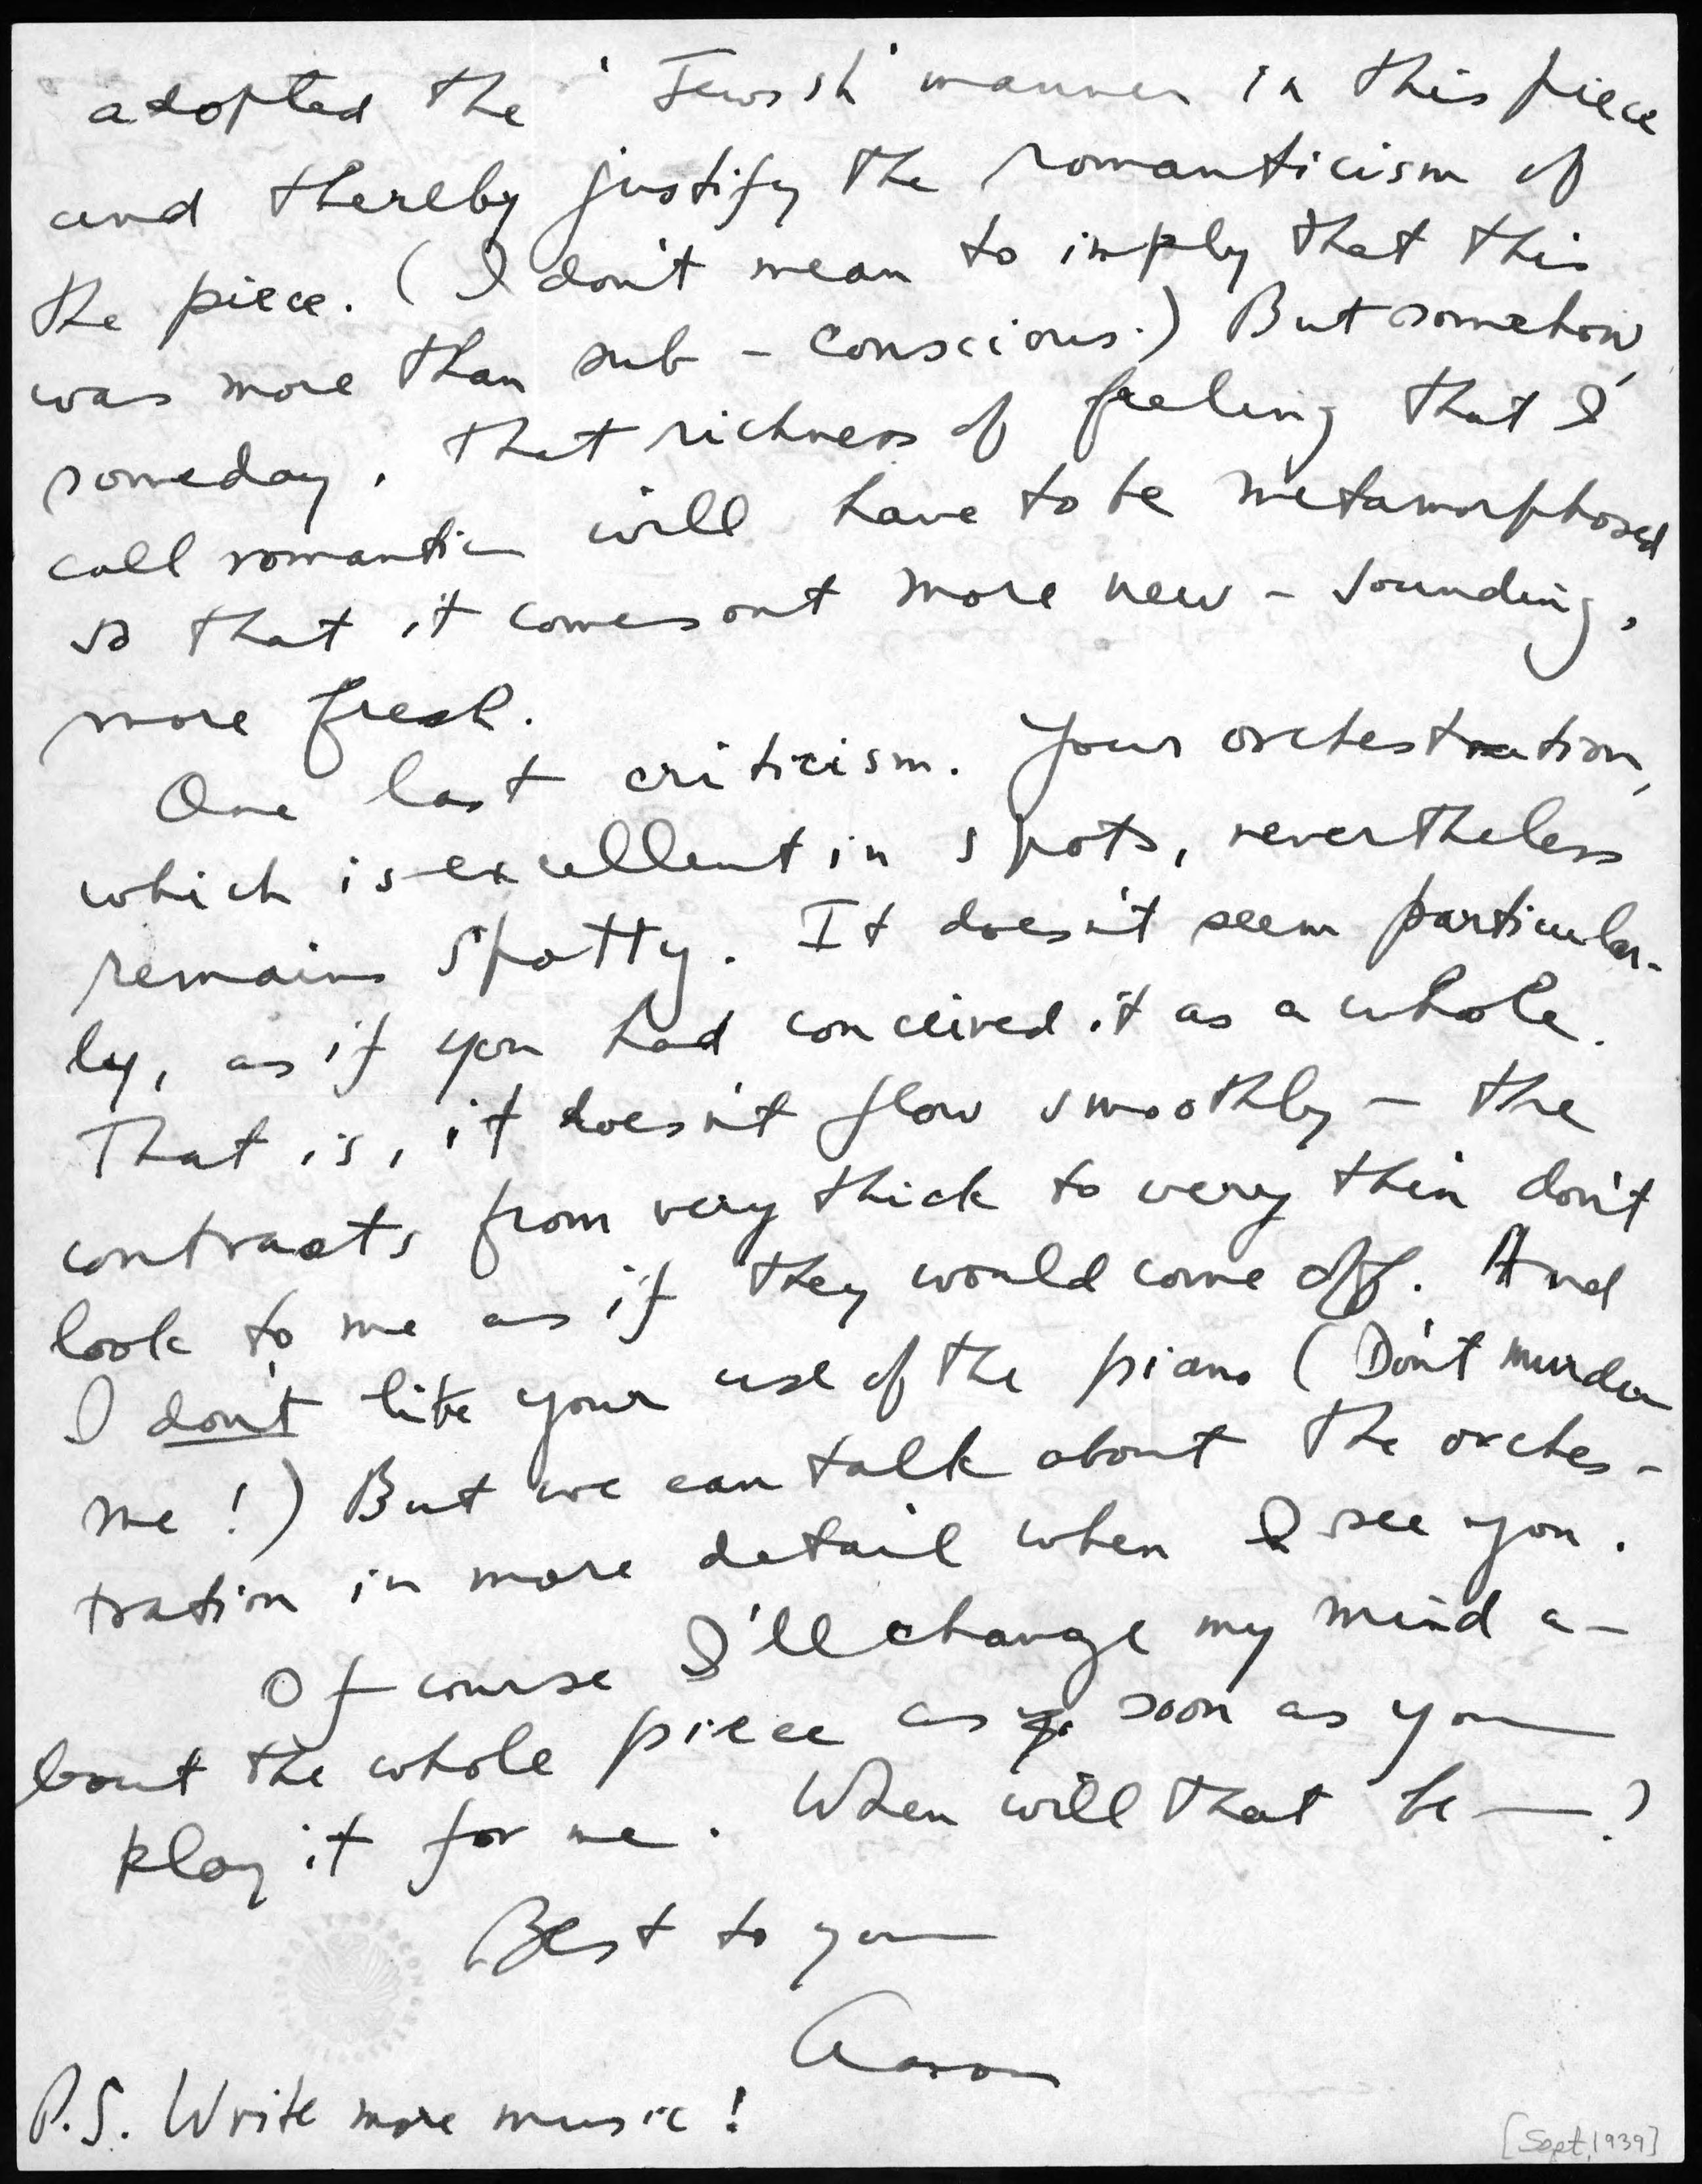 adopted the "Jewish" manner in this piece
and thereby justify the romanticism of
the piece. (I don't mean to imply that this
was more than sub-conscious.) But somehow,
someday, that richness of feeling that I
call romantic will have to be metamorphosed
so that it comes out more new-sounding,
more fresh.
One last criticism. Your orchestration,
which is excellent in spots, nevertheless
remains spotty. It doesn't seem particular-
ly, as if you had conceived it as a whole.
That is, it doesn't flow smoothly – the
contrasts from very thick to very thin don't
look to me as if they would come off. And
I don't like your use of the piano (Don't murder
me!) But we can talk about the orches-
tration in more detail when I see you.
Of course I'll change my mind a-
bout the whole piece as soon as you
play it for me. When will that be —?
Best to you
Aaron
P.S. Write more music!
[Sept, 1939]